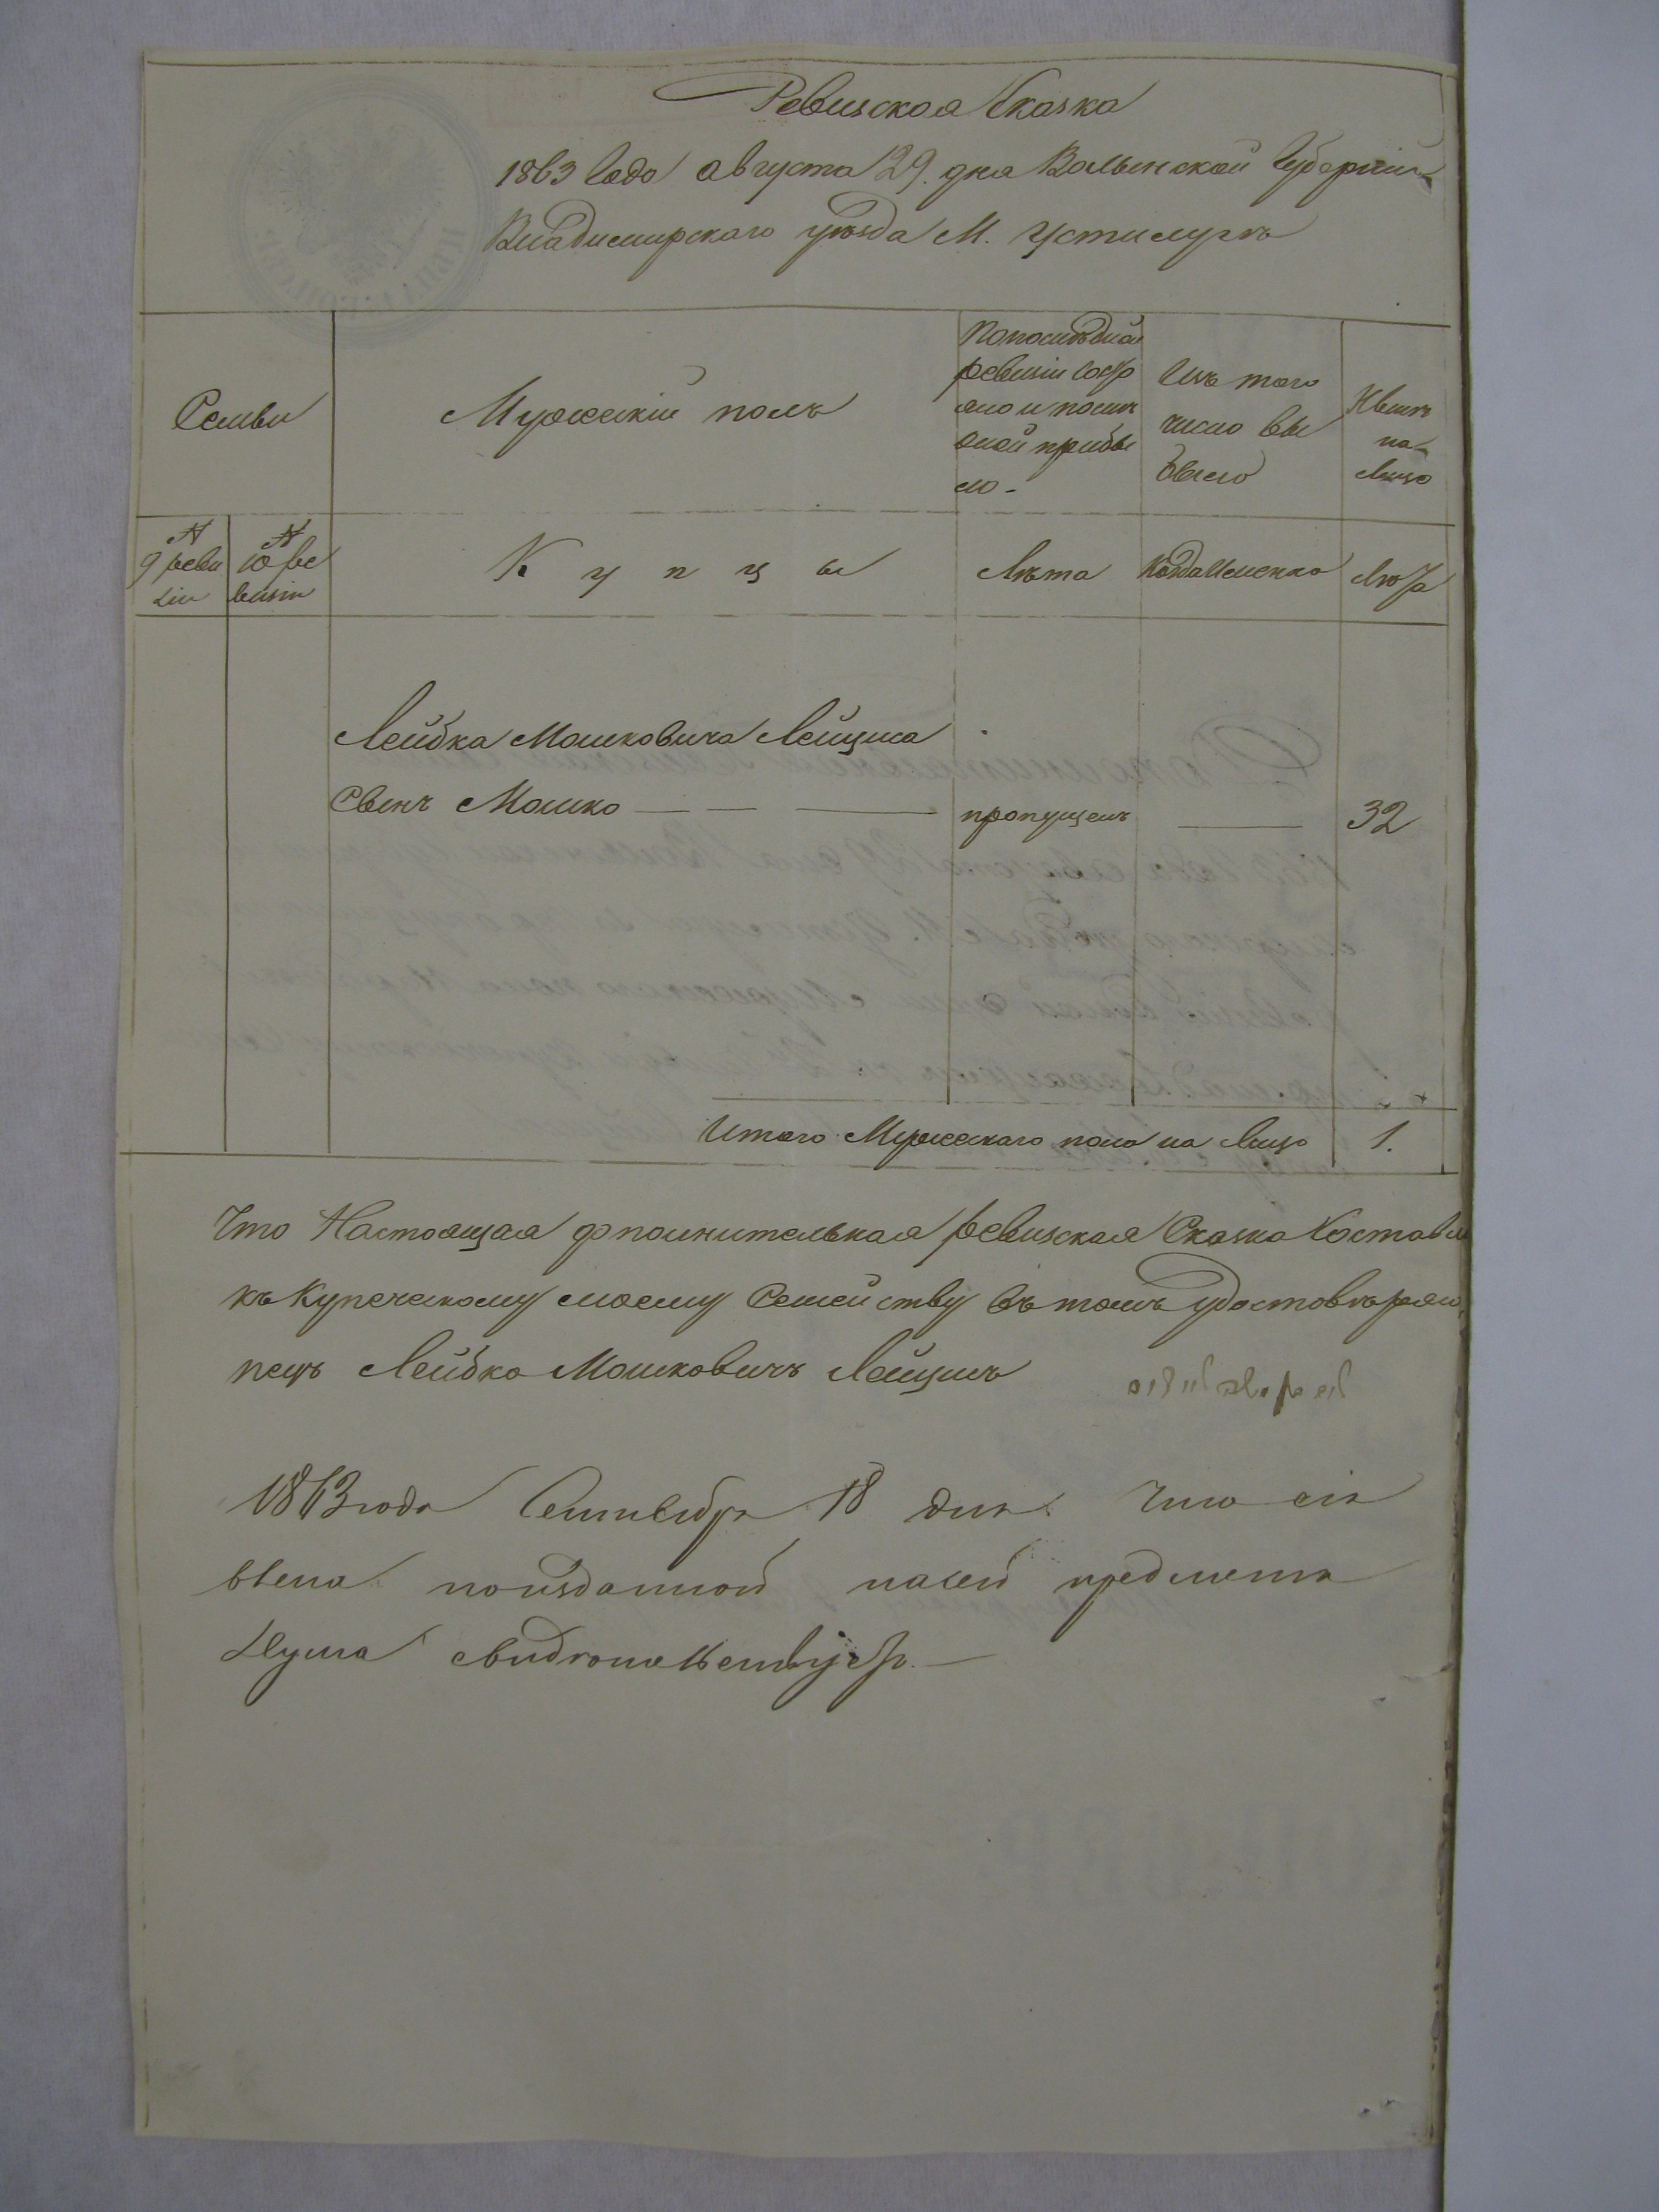 Ревизская Сказка
1863 Года августа 29. дня Волынской Губернии
Владимирского уѣзда М. Устилугѣ
Семьи
Мужескій полъ
По послѣдней
ревизіи состо
яло и послѣ
оной прибы
ло -
Изъ того
число вы
было
Нынѣ
на-
лицо
№
9 реви
зіи
№
10 ре
визіи
К у п ц ы
Лѣта
Когда именно
Лѣта
Лейбка Мошковича Лейциса
Сынъ Мошко
пропущенъ
32
Итого Мужескаго пола на лицо
1.
Что Настоящая дополнительная ревизская Сказка Составле
къ Купеческому моему Семейству въ томъ удостовѣряю
пецъ Лейбко Мошковичъ Лейцисъ
1863 года Сентября 18 дня. Что сія
на сей предмета
Дума свидѣтельствуетъ.